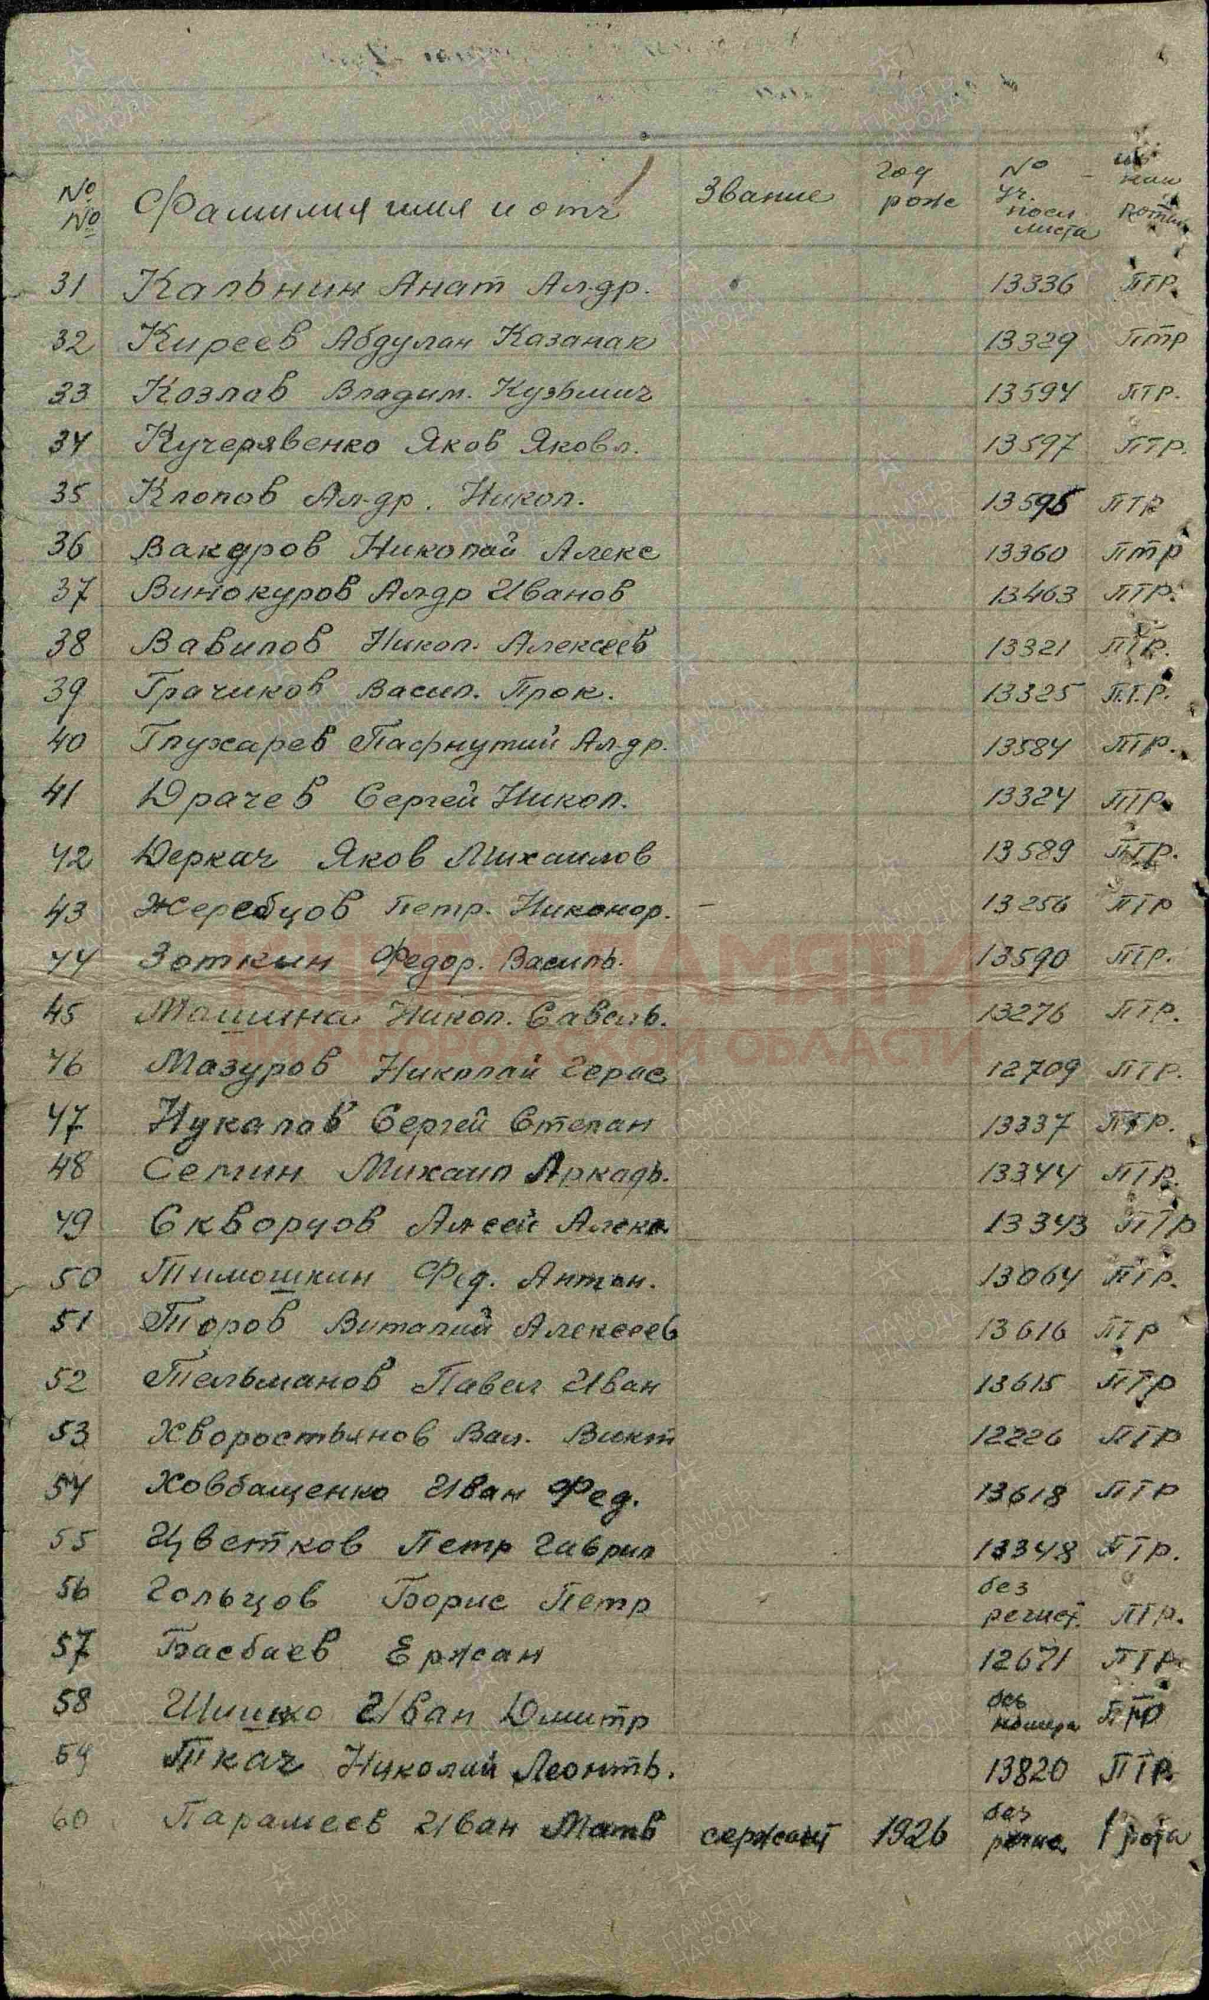 № № Фамилия имя и отч Звание год рожд № уч. посл листа из какой роты
31 Кальнин Анат Ал-др. 13336 ПТР.
32 Киреев Абдулан Казанак 13329 ПТР
33 Козлов Владим. Кузьмич 13594 ПТР.
34 Кучерявенко Яков Яковл. 13597 ПТР.
35 Клопов Ал-др. Никол. 13595 ПТР
36 Вакуров Николай Алекс 13360 ПТР
37 Винокуров Ал-др Иванов 13463 ПТР.
38 Вавилов Никол. Алексеев 13321 ПТР.
39 Грачиков Васил. Прок. 13325 П.Т.Р.
40 Глухарев Пафнутий Ал-др. 13584 ПТР.
41 Драчев Сергей Никол. 13324 ПТР.
42 Деркач Яков Михаилов 13589 ПТР.
43 Жеребцов Петр. Никонор. – 13256 ПТР
44 Зоткин Федор. Василь. 13590 ПТР.
45 Машина Никол. Савель. 13276 ПТР.
46 Мазуров Николай Герас 12709 ПТР.
47 Нукалов Сергей Степан 13337 ПТР.
48 Семин Михаил Аркадь. 13344 ПТР.
49 Скворцов Ал-сей Алекс 13343 ПТР
50 Тимошкин Фед. Антон. 13064 ПТР.
51 Торов Виталий Алексеев 13616 ПТР
52 Тельманов Павел Иван 13615 ПТР
53 Хворостьянов Вал. Викт 12226 ПТР
54 Ховбащенко Иван Фед. 13618 ПТР
55 Цветков Петр Гаврил 13348 ПТР.
56 Гольцов Борис Петр без регист. ПТР.
57 Басбаев Ержан 12671 ПТР
58 Шишко Иван Дмитр без номера ПТР
59 Ткач Николай Леонть. 13820 ПТР
60 Парамеев Иван Матв сержант 1926 без 1 рота
КНИГА ПАМЯТИ
НИЖЕГОРОДСКОЙ ОБЛАСТИ
ПАМЯТЬ НАРОДА